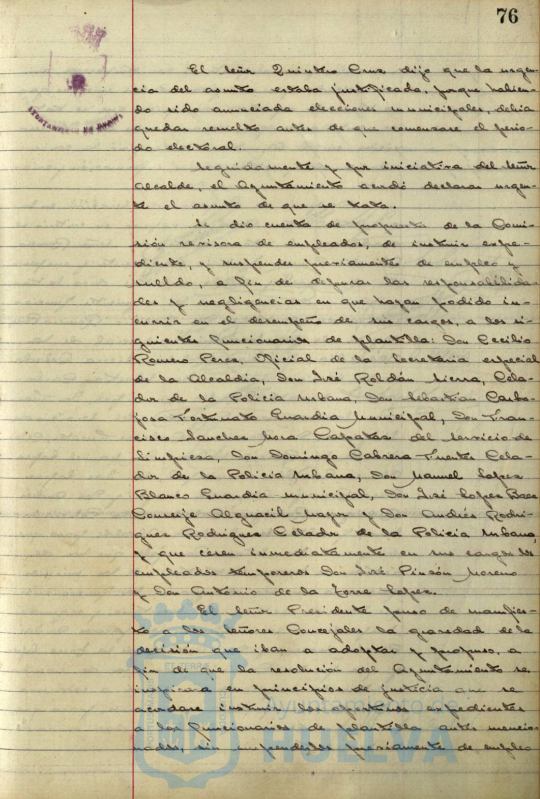 76
AYUNTAMIENTO DE HUELVA
El señor Quintero Cruz dijo que la urgen-
cia del asunto estaba justificada, porque habien-
do sido anunciada elecciones municipales, debía
quedar resuelto antes de que comenzase el perio-
do electoral.
Seguidamente y por iniciativa del señor
Alcalde, el Ayuntamiento acordó declarar urgen-
te el asunto de que se trata.
Se dio cuenta de propuesta de la Comi-
sión revisora de empleados, de instruir expe-
diente, y suspender previamente de empleo y
sueldo, a fin de depurar las responsabilida-
des y negligencias en que hayan podido in-
currir en el desempeño de sus cargos, a los si-
guientes funcionarios de plantilla: Don Cecilio
Romero Perez, Oficial de la Secretaria especial
de la Alcaldia, Don José Roldán Sierra, Cela-
dor de la Policia Urbana, Don Sebastian Carba-
josa Fortunato Guardia Municipal, Don Fran-
cisco Sanchez Mora Capataz del servicio de
limpieza, Don Domingo Cabrera Fuertes Cela-
dor de la Policia Urbana, Don Manuel Lopez
Blanco Guardia municipal, Don José Lopez Baez
Conserje Alguacil Mayor y Don Andrés Rodri-
guez Rodriguez Celador de la Policia Urbana,
y que cesen inmediatamente en sus cargos los
empleados temporeros Don José Pinzón Moreno
y Don Antonio de la Torre Lopez.
El señor Presidente puso de manifies-
to a los señores Concejales la gravedad de la
decisión que iban a adoptar y propuso, a
fin de que la resolución del Ayuntamiento se
inspirara en principios de justicia que se
acordase instruir los oportunos expedientes
a los funcionarios de plantilla antes mencio-
nados, sin suspenderlos previamente de empleo
Ayuntamiento de
HUELVA